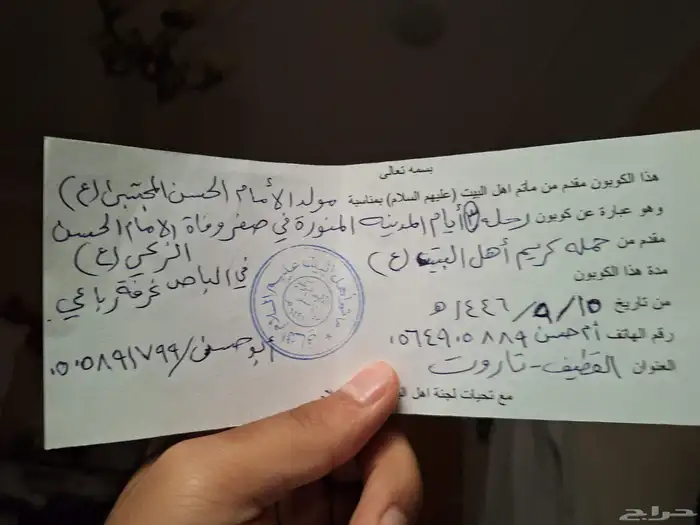 بسمه تعالى
هذا الكوبون مقدم من مأتم اهل البيت (عليهم السلام) بمناسبة مولد الأمام الحسن المجتبى (ع)
وهو عبارة عن كوبون رحله ٣ أيام المدينه المنورة في صفر وفاة الامام الحسن الزكي (ع)
مقدم من حمله كريم أهل البيت (ع) في الباص غرفة رباعي
مدة هذا الكوبون
من تاريخ ١٤٤٦/٩/١٥ هـ
رقم الهاتف أم حسن ٠٥٦٤٩٠٥٨٨٩ أبو حسن / ٠٥٠٥٨٩١٧٩٩
العنوان القطيف - تاروت
مع تحيات لجنة اهل
حراج